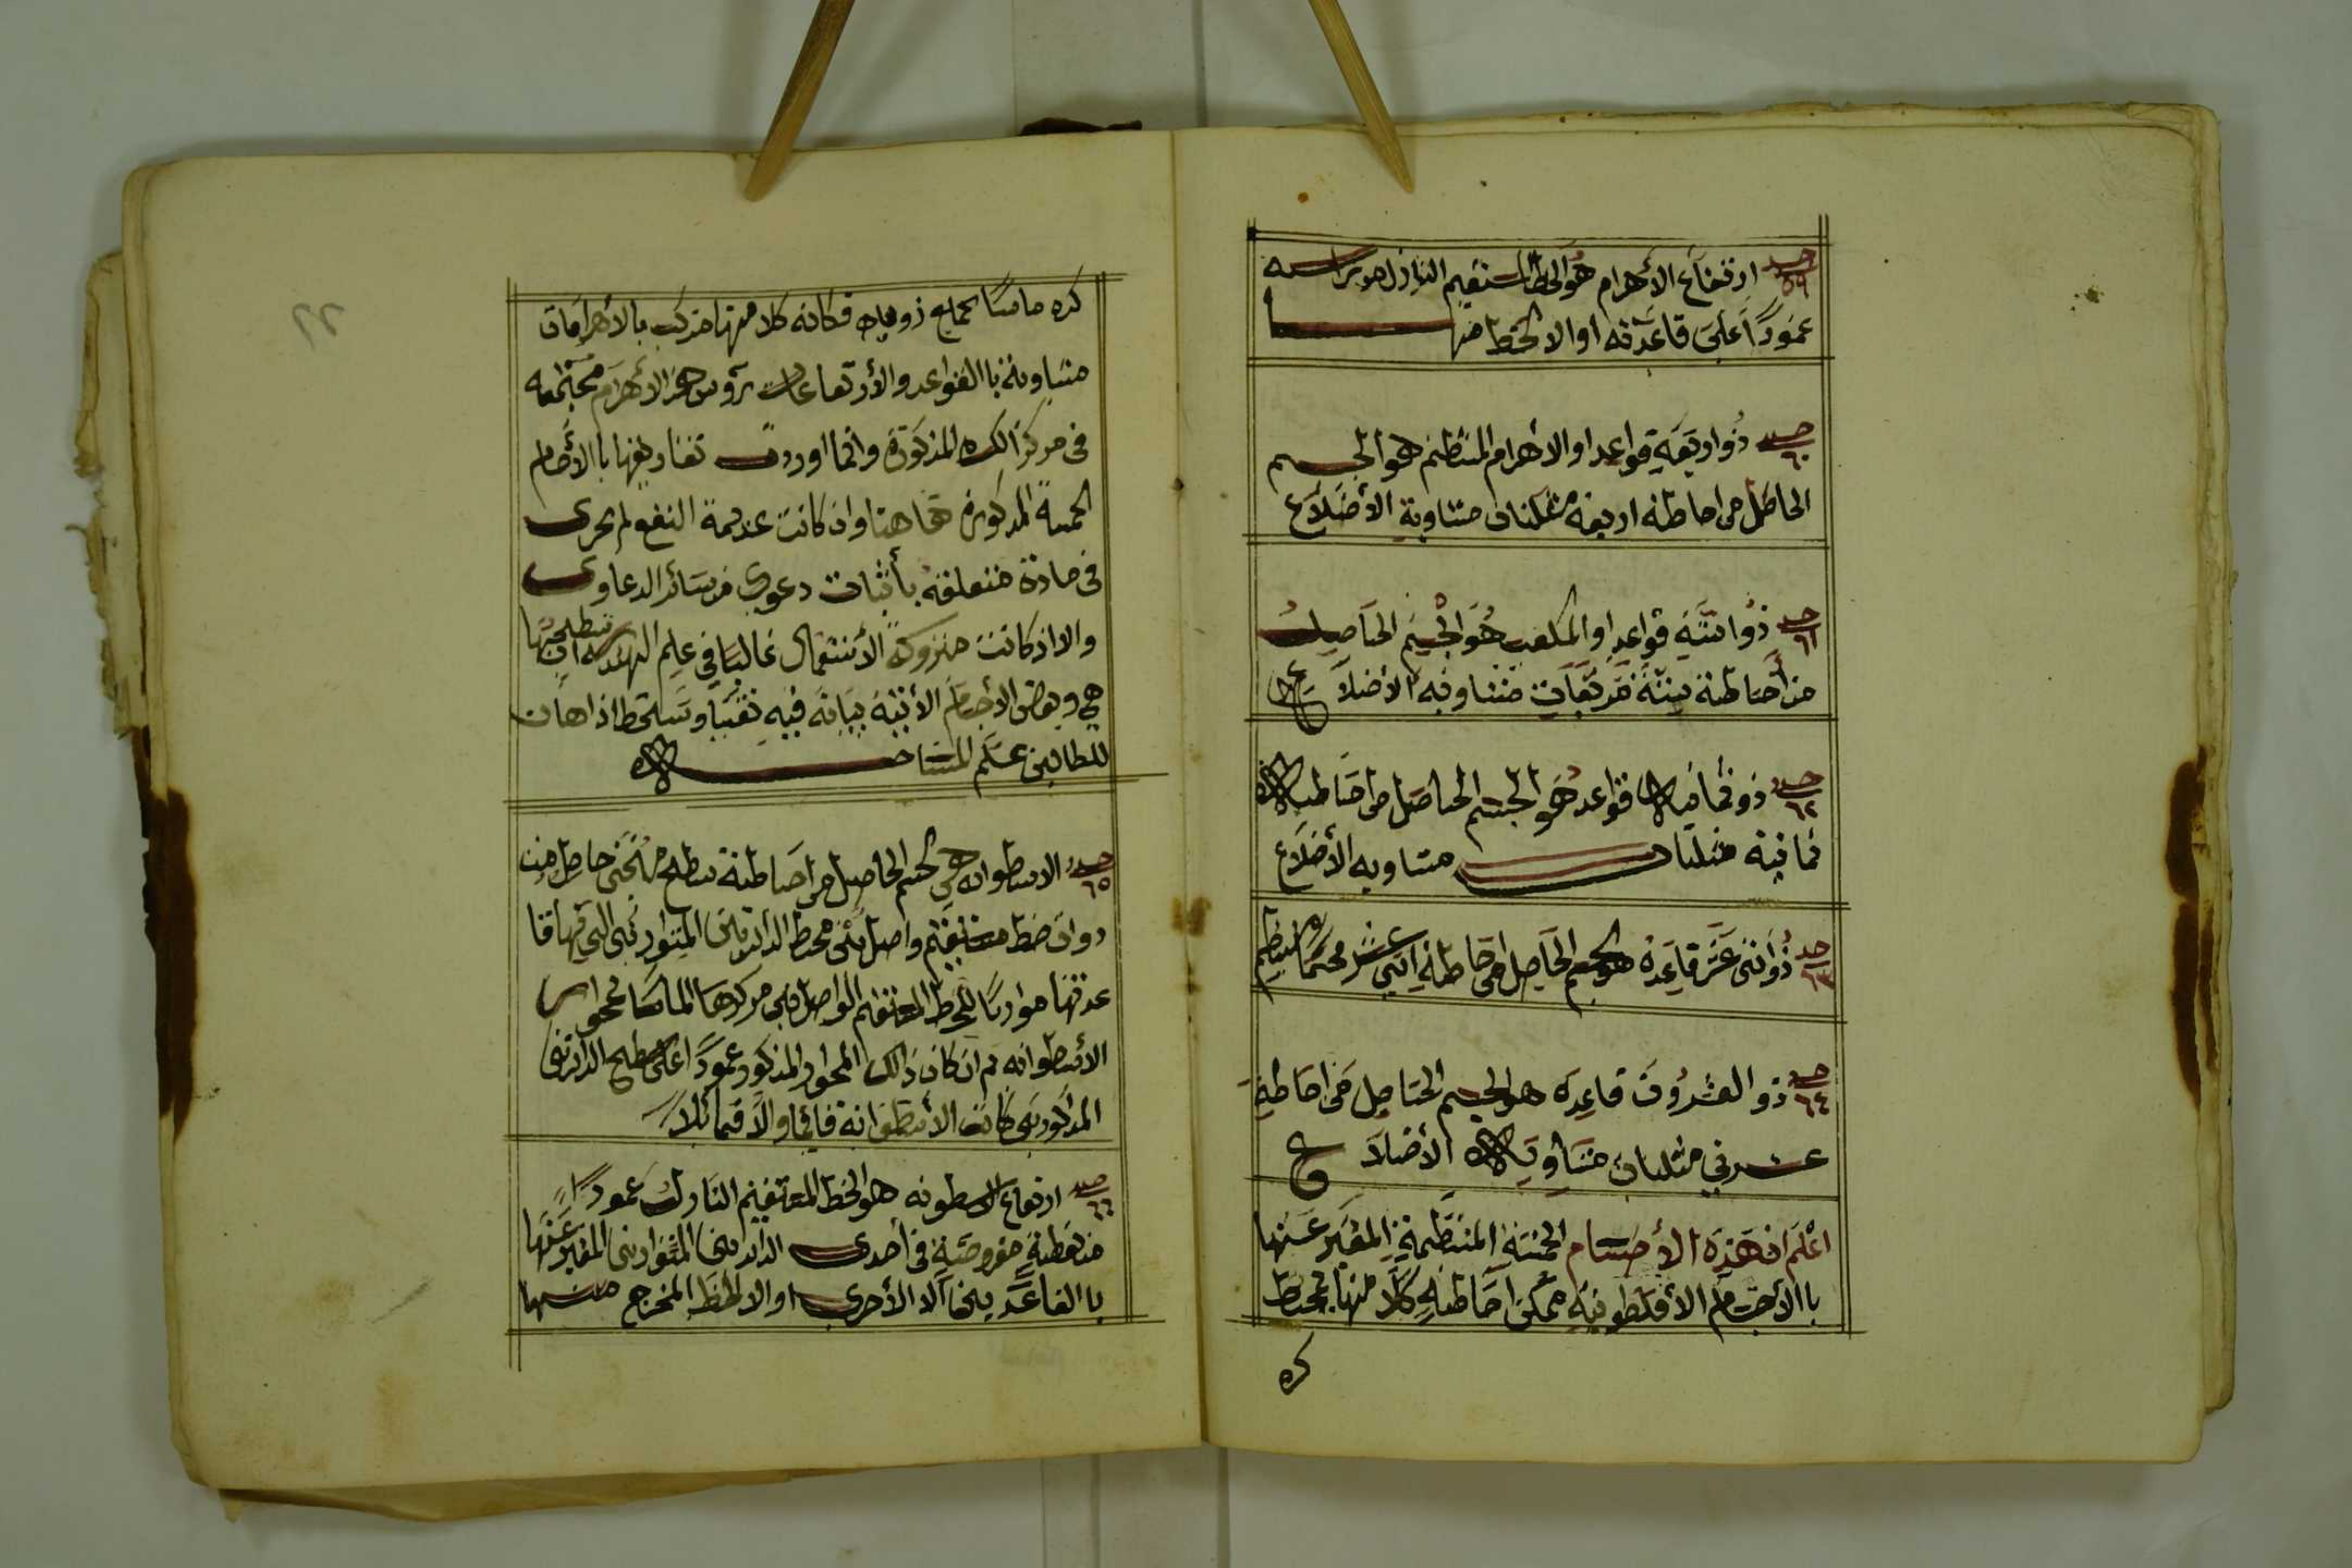 حد ٥٩ ارتفاع الأهرام هو الخط المستقيم النازل من رأسه
عمودًا على قاعدته او الاخط منها
حد ٦٠ ذو اربعة قواعد او الاهرام المنتظم هو الجسم
الحاصل من احاطة اربعة مثلثات متساوية الأضلاع
حد ٦١ ذو استّة قواعد او المكعب هو الجسم الحاصل
من أحاطة ستة مربعات متساوية الأضلاع
حد ٦٢ ذو ثمانية قواعد هو الجسم الحاصل من احاطة
ثمانية مثلثات متساوية الأضلاع
حد ٦٣ ذو اثنى عشر قاعدة هو الجسم الحاصل من احاطة اثنى عشر مخمسًا منتظم
حد ٦٤ ذو العشرون قاعده هو الجسم الحاصل من احاطة
عشرين مثلثات متساوية الأضلاع
اعلم ان هذه الأجسام الخمسة المنتظمة المعبر عنها
باالأجسام الأفلطونية ممكن احاطة كلا منها بمحيط
كره
كره مماسًا لجماع زواياه فكانه كلا منها متركب بالأهرامات
متساوية باالقواعد والأرتفاعات رؤس هذه الأهرام مجتمعه
فى مركز الكره المذكورة وانما اوردت تعاريفها باالأجسام
الخمسة المذكورة هاهنا وان كانت عديمة النفع لم تجرى
فى مادة متعلقة بأثبات دعوى من سائر الدعاوى
والا اذ كانت متروكة الأستعمال غالبا فى علم الهندسه
هي وبعض الأجسام الأتية بيانه فيه
للطالبين علم المساحة
حد ٦٥ الاسطوانه هي الجسم الحاصل من احاطة سطح منحنى حاصل من
دوران خط مستقيم واصل بين محيط الدائرتين المتوازيتى التي هما قا
عدتها موازيًا للخط المستقيم الواصل بين مركزهما المسمّا بمحوا س
الأسطوانه ثم ان كان ذالك المحوار المذكور عمودًا على سطح الدائرتين
المذكورتين كانت الأسطوانة قائمًا والا فمائلا
حد ٦٦ ارتفاع الاسطونه هو الخط المستقيم النازل عمودًا
من نقطة مفروضة فى أحدى الدائرتين المتوازيتين المعبر عنها
باالقاعدتين الا الأخرى او الا الخط المخرج منها
٢٢